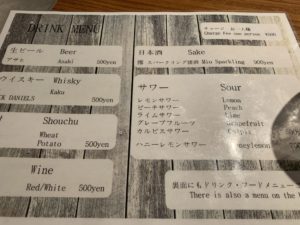 DRINK MENU
チャージ お一人様
Charge for one person ¥500
生ビール Beer
アサヒ Asahi 500yen
ウイスキー Whisky
Kaku
JACK DANIELS 500yen
Shouchu
Wheat
Potato 500yen
Wine
Red/White 500yen
日本酒 Sake
澪 スパークリング清酒 Mio Sparkling 500yen
サワー Sour
レモンサワー Lemon
ピーチサワー Peach
ライムサワー Lime
グレープフルーツ Grapefruit
カルピスサワー Calpis
ハニーレモンサワー Honeylemon
裏面にもドリンク・フードメニュー
There is also a menu on the